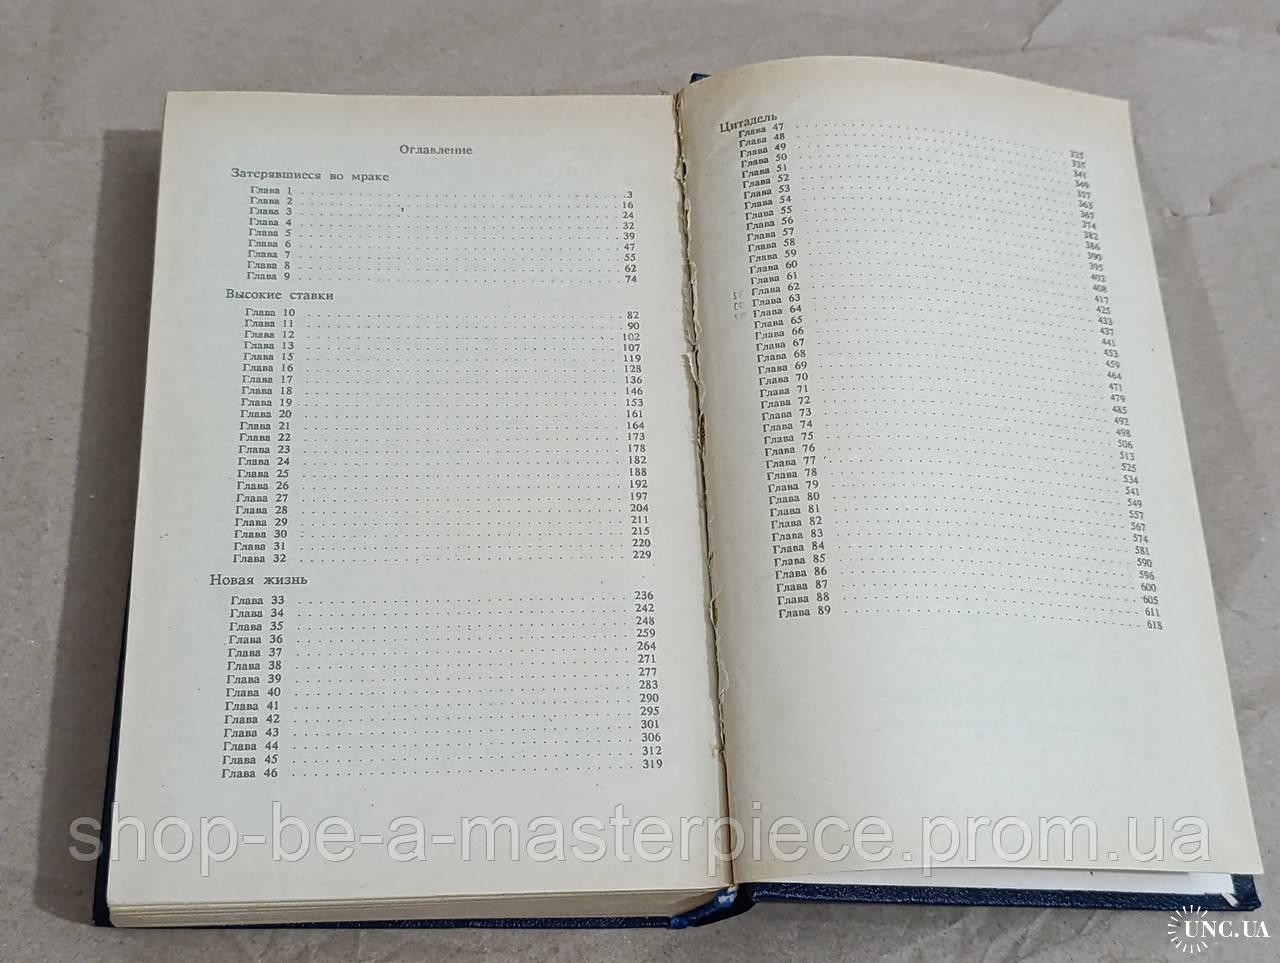 Оглавление
Затерявшиеся во мраке
Глава 1 3
Глава 2 16
Глава 3 24
Глава 4 32
Глава 5 39
Глава 6 47
Глава 7 55
Глава 8 62
Глава 9 74
Высокие ставки
Глава 10 82
Глава 11 90
Глава 12 102
Глава 13 107
Глава 15 119
Глава 16 128
Глава 17 136
Глава 18 146
Глава 19 153
Глава 20 161
Глава 21 164
Глава 22 173
Глава 23 178
Глава 24 182
Глава 25 188
Глава 26 192
Глава 27 197
Глава 28 204
Глава 29 211
Глава 30 215
Глава 31 220
Глава 32 229
Новая жизнь
Глава 33 236
Глава 34 242
Глава 35 248
Глава 36 259
Глава 37 264
Глава 38 271
Глава 39 277
Глава 40 283
Глава 41 290
Глава 42 295
Глава 43 301
Глава 44 306
Глава 45 312
Глава 46 319
Цитадель
Глава 47 325
Глава 48 335
Глава 49 341
Глава 50 349
Глава 51 357
Глава 52 363
Глава 53 367
Глава 54 374
Глава 55 382
Глава 56 386
Глава 57 390
Глава 58 395
Глава 59 402
Глава 60 408
Глава 61 417
Глава 62 425
Глава 63 433
Глава 64 437
Глава 65 441
Глава 66 453
Глава 67 459
Глава 68 464
Глава 69 471
Глава 70 479
Глава 71 485
Глава 72 492
Глава 73 498
Глава 74 506
Глава 75 513
Глава 76 525
Глава 77 534
Глава 78 541
Глава 79 549
Глава 80 557
Глава 81 567
Глава 82 574
Глава 83 581
Глава 84 590
Глава 85 596
Глава 86 600
Глава 87 605
Глава 88 611
Глава 89 618
shop-be-a-masterpiece.prom.ua
UNC.UA